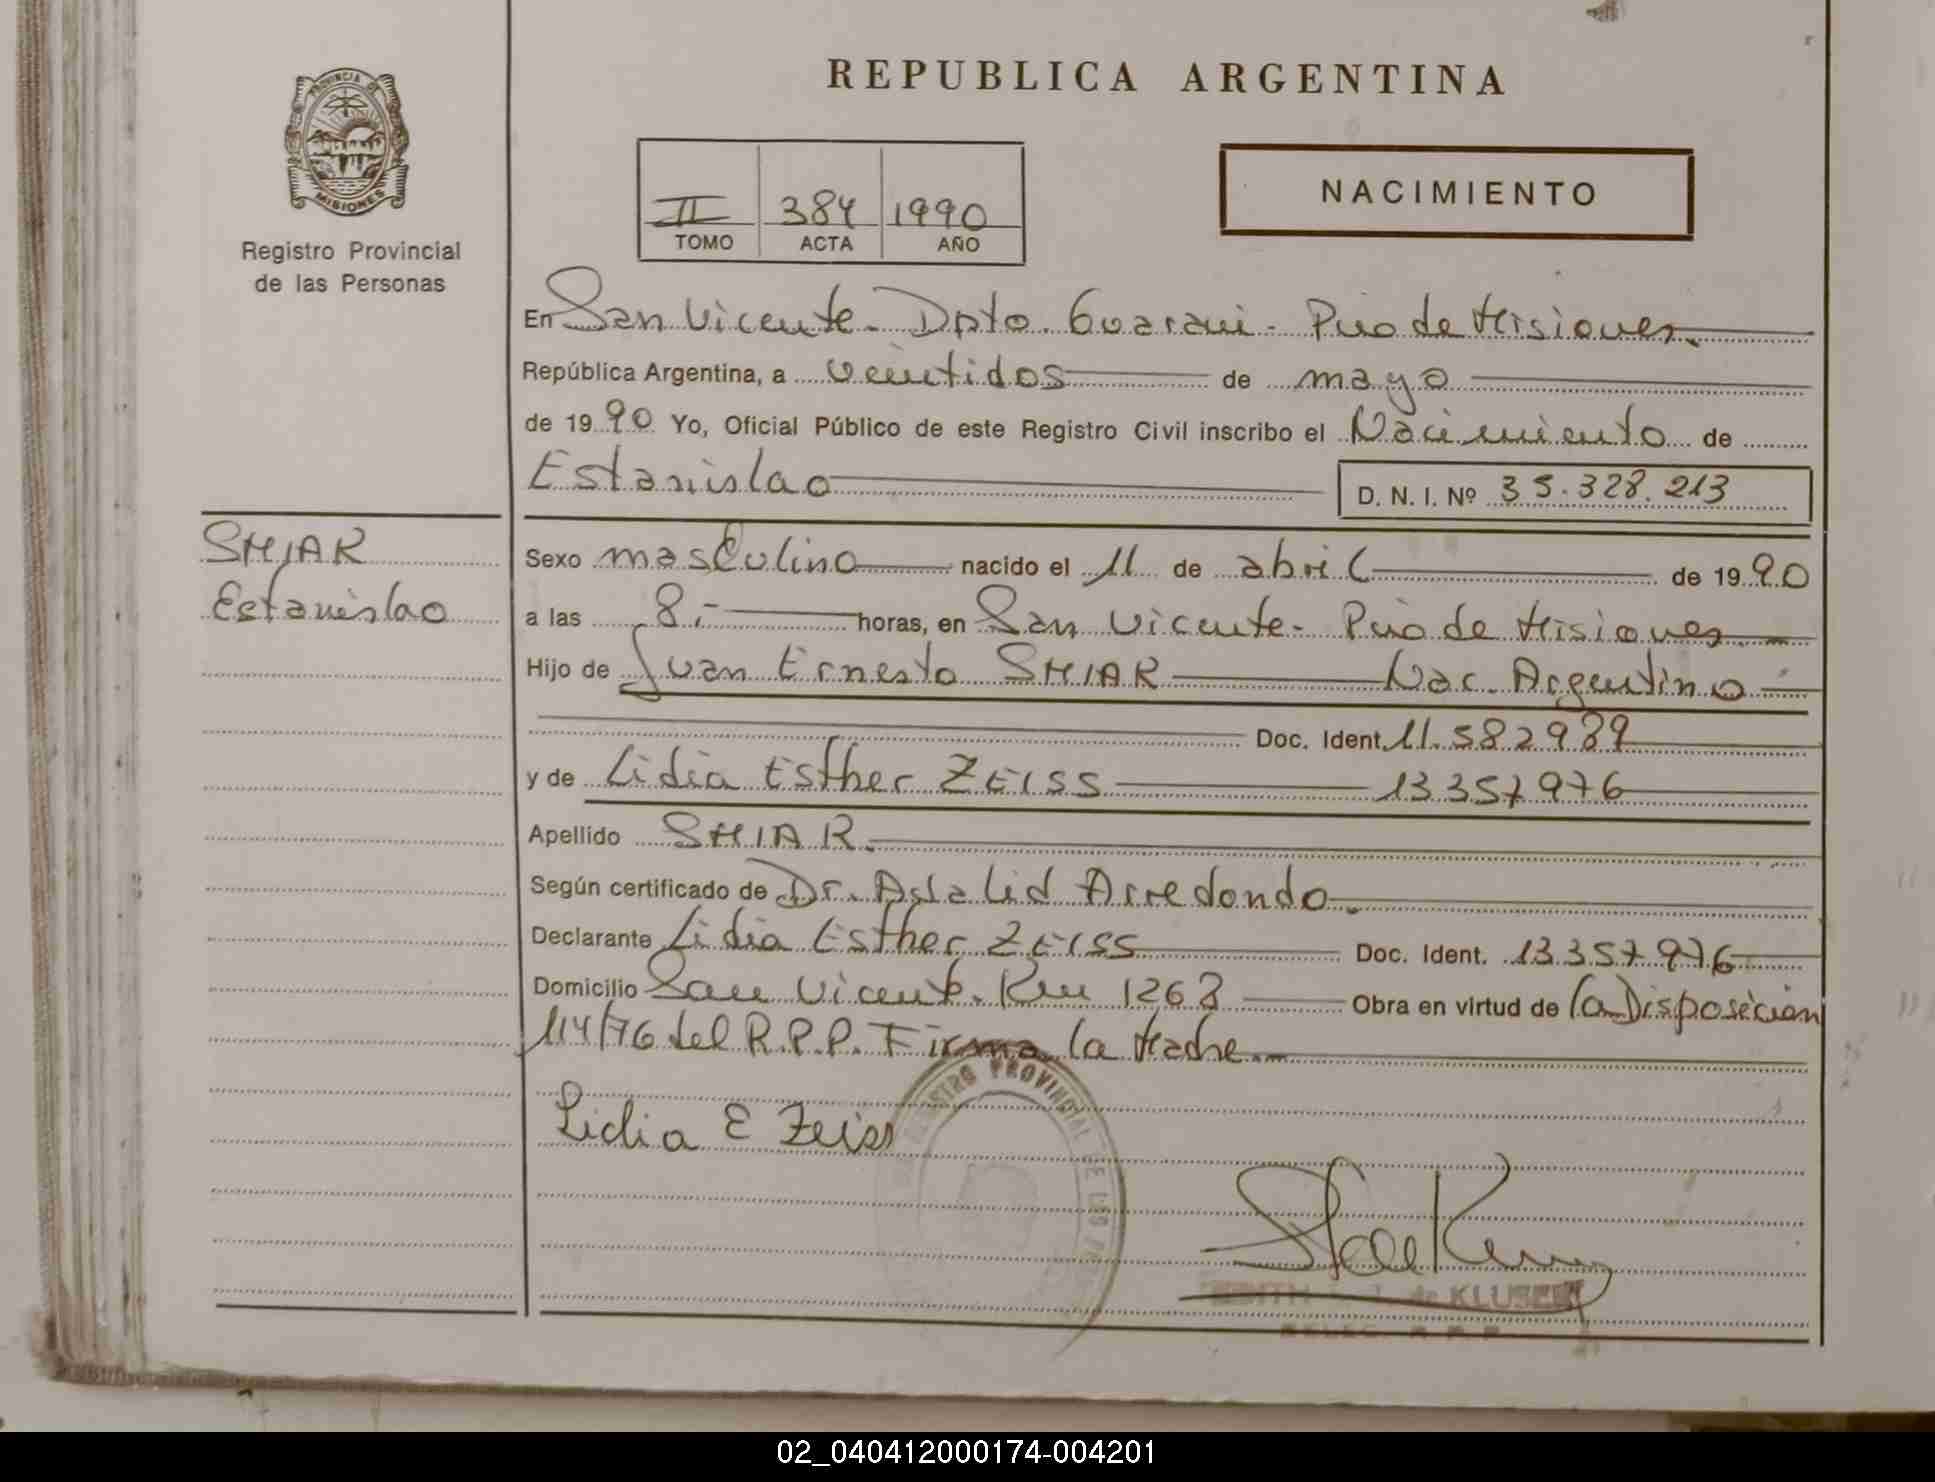 REPUBLICA ARGENTINA
PROVINCIA DE
MISIONES
Registro Provincial
de las Personas
II 384 1990
TOMO ACTA AÑO
NACIMIENTO
En San Vicente - Dpto. Guarani - Pcio de Misiones.
República Argentina, a veintidos de mayo
de 1990 Yo, Oficial Público de este Registro Civil inscribo el Nacimiento de
Estanislao D. N. I. Nº 35.328.213
SMIAR
Estanislao
Sexo masculino nacido el 11 de abril de 1990
a las 8.- horas, en San Vicente - Pcio de Misiones
Hijo de Juan Ernesto SMIAR Nac. Argentino
Doc. Ident. 11.582989
y de Lidia Esther ZEISS 13357976
Apellido SMIAR.
Según certificado de Dr. Arredondo.
Declarante Lidia Esther ZEISS Doc. Ident. 13357976
Domicilio San Vicente. Km 1263 Obra en virtud de la Disposición
114/76 del R.P.P. Firma la Madre.
REGISTRO PROVINCIAL DE LAS
Lidia E Zeiss
EDITH de KLUSENER
02_040412000174-004201